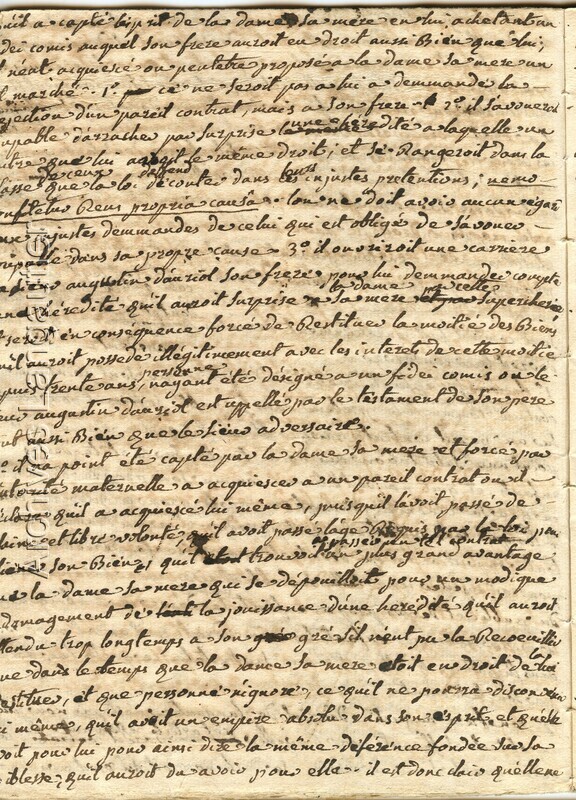 qu'il a capté l'esprit de la dame sa mere en lui achetant un
fidei comis auquel son frere auroit eu droit aussi Bien que lui,
n'eut acquiescé ou peutetre proposé a la dame sa mere un
marché. 1.° ce ne seroit pas a lui a demmandé la
rejection d'un pareil contrat, mais a son frere 2.° il s'avoueroit
coupable d'arracher par surprise une hérédité a laquelle un
autre que lui auroit le même droit, et se Rangeroit dans la
classe de ceux que la loi deffend d'écouter dans leurs injustes pretentions; nemo
auditur Réus propria causa. l'on ne doit avoir aucun egard
aux injustes demmandes de celui qui est obligé de s'avouer
coupable dans sa propre cause. 3.° il ouvriroit une carriere
augustin dauriol son frere pour lui demmander compte
hérédité qu'il auroit surprise a la dame sa mere par celle supercherie
et seroit en consequence forcé de Restituer la moitié des Biens
qu'il auroit possedé illégitimement avec les interets de cette moitié
depuis trente ans, personne n'ayant été désigné a un fidei comis ou le
sieur augustin dauriol est appellé par le testament de son pere
tout aussi Bien que le sieur adversaire.
il n'a point été capté par la dame sa mere et forcé par
l'autorité maternelle a acquiescer a un pareil contrat ou il
qu'il a acquiescé lui même, puisqu'il l'avoit passé de
pleine et libre volonté, qu'il avoit passé l'age Requis par la loi pour
son Bien, et qu'il trouvoit a passer un tel contrat un plus grand avantage
que la dame sa mere qui se dépouilloit pour un modique
dédomagement de la jouissance d'une herédité qu'il auroit
attendu trop longtemps a son gré s'il n'eut pu la Recoeuillir
que dans le temps que la dame sa mere etoit en droit de la lui
restituer, et que personne n'ignore, ce qu'il ne pourra disconvenir
lui même, qu'il avoit un empire absolu dans son esprit et qu'elle
avoit pour lui pour ainsi dire la même déférence fondée sur sa
foiblesse, qu'il auroit du avoir pour elle. il est donc clair qu'elle ne